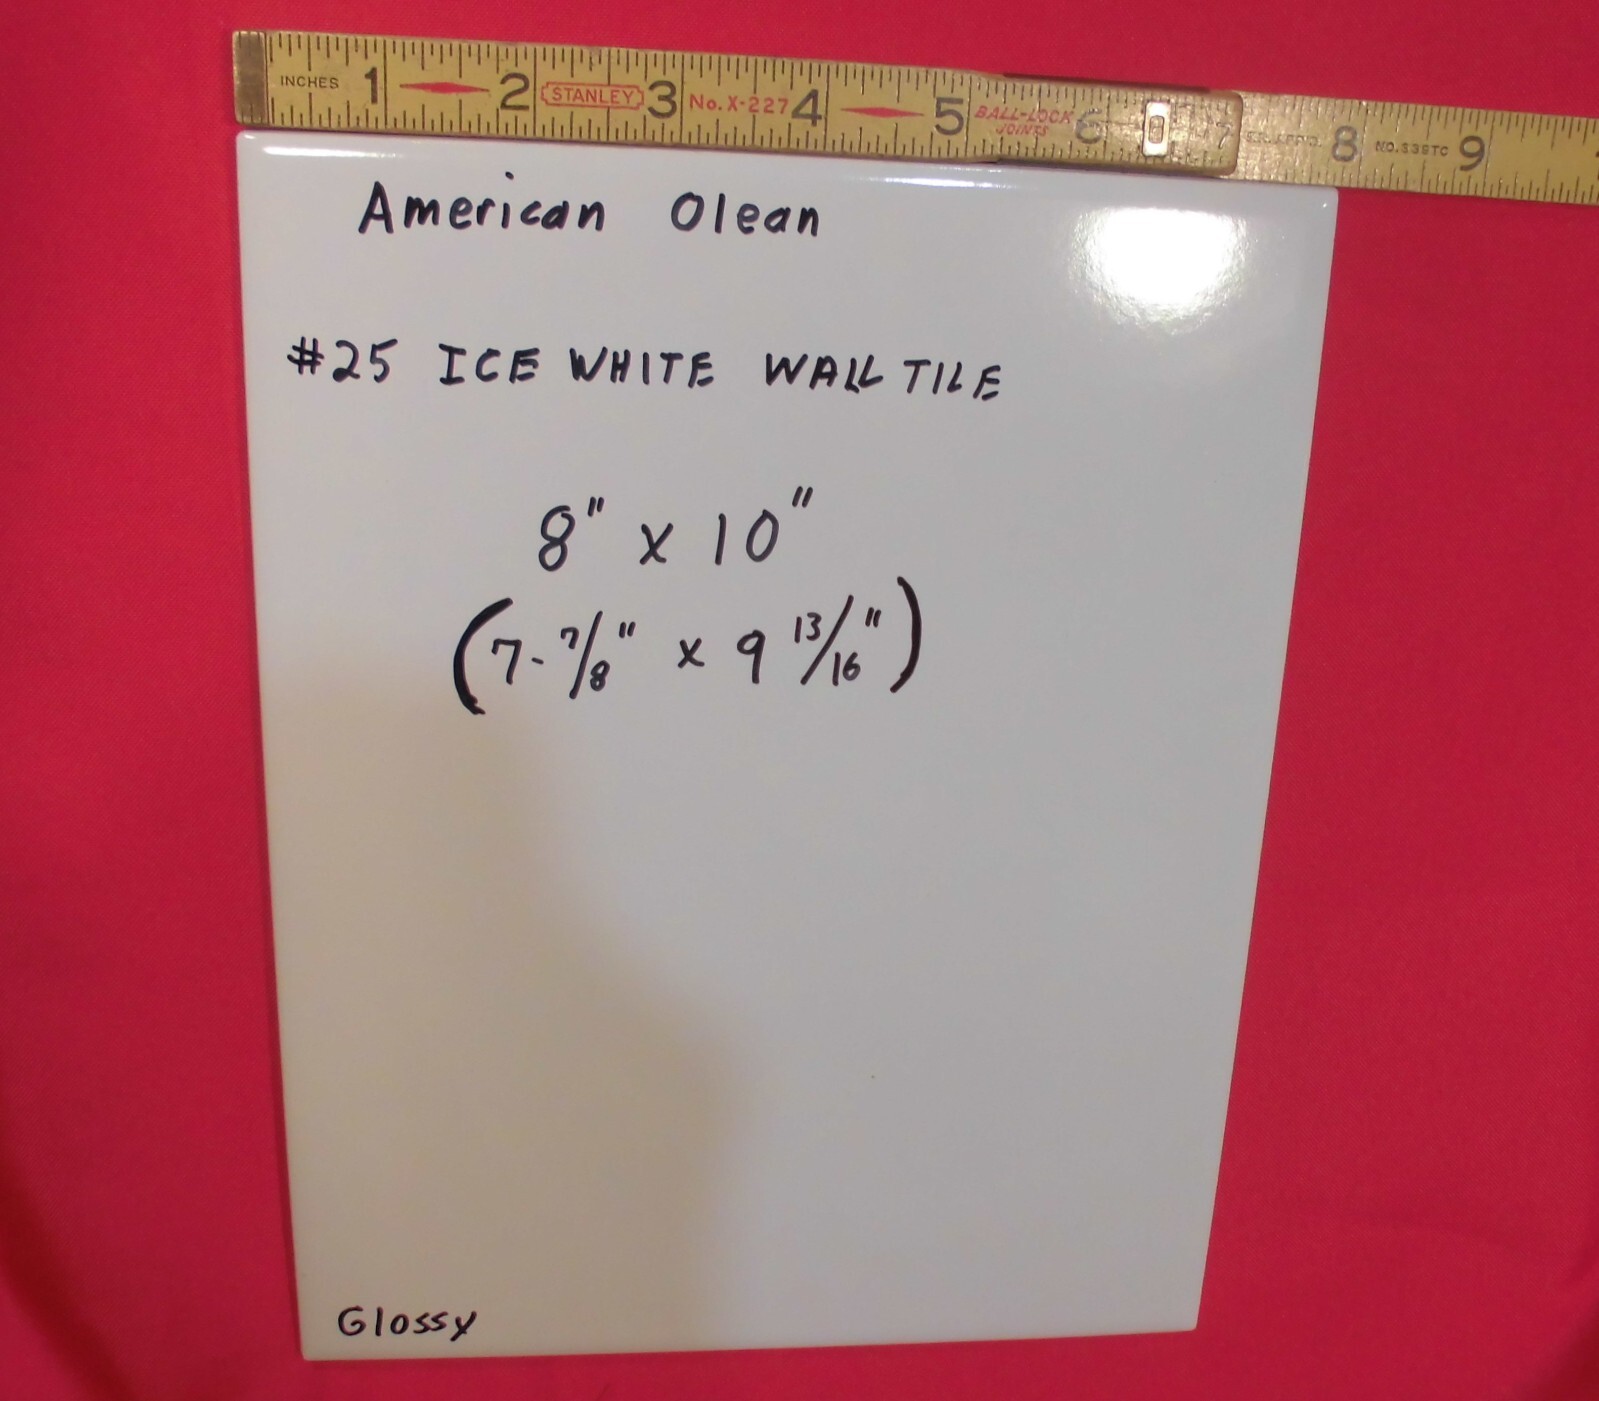 INCHES 1 2 STANLEY 3 No. X-227 4 5 BALL-LOCK JOINTS 6 7 8 NO. 9
American Olean
#25 ICE WHITE WALL TILE
8" x 10"
(7-7/8" x 9 13/16")
Glossy